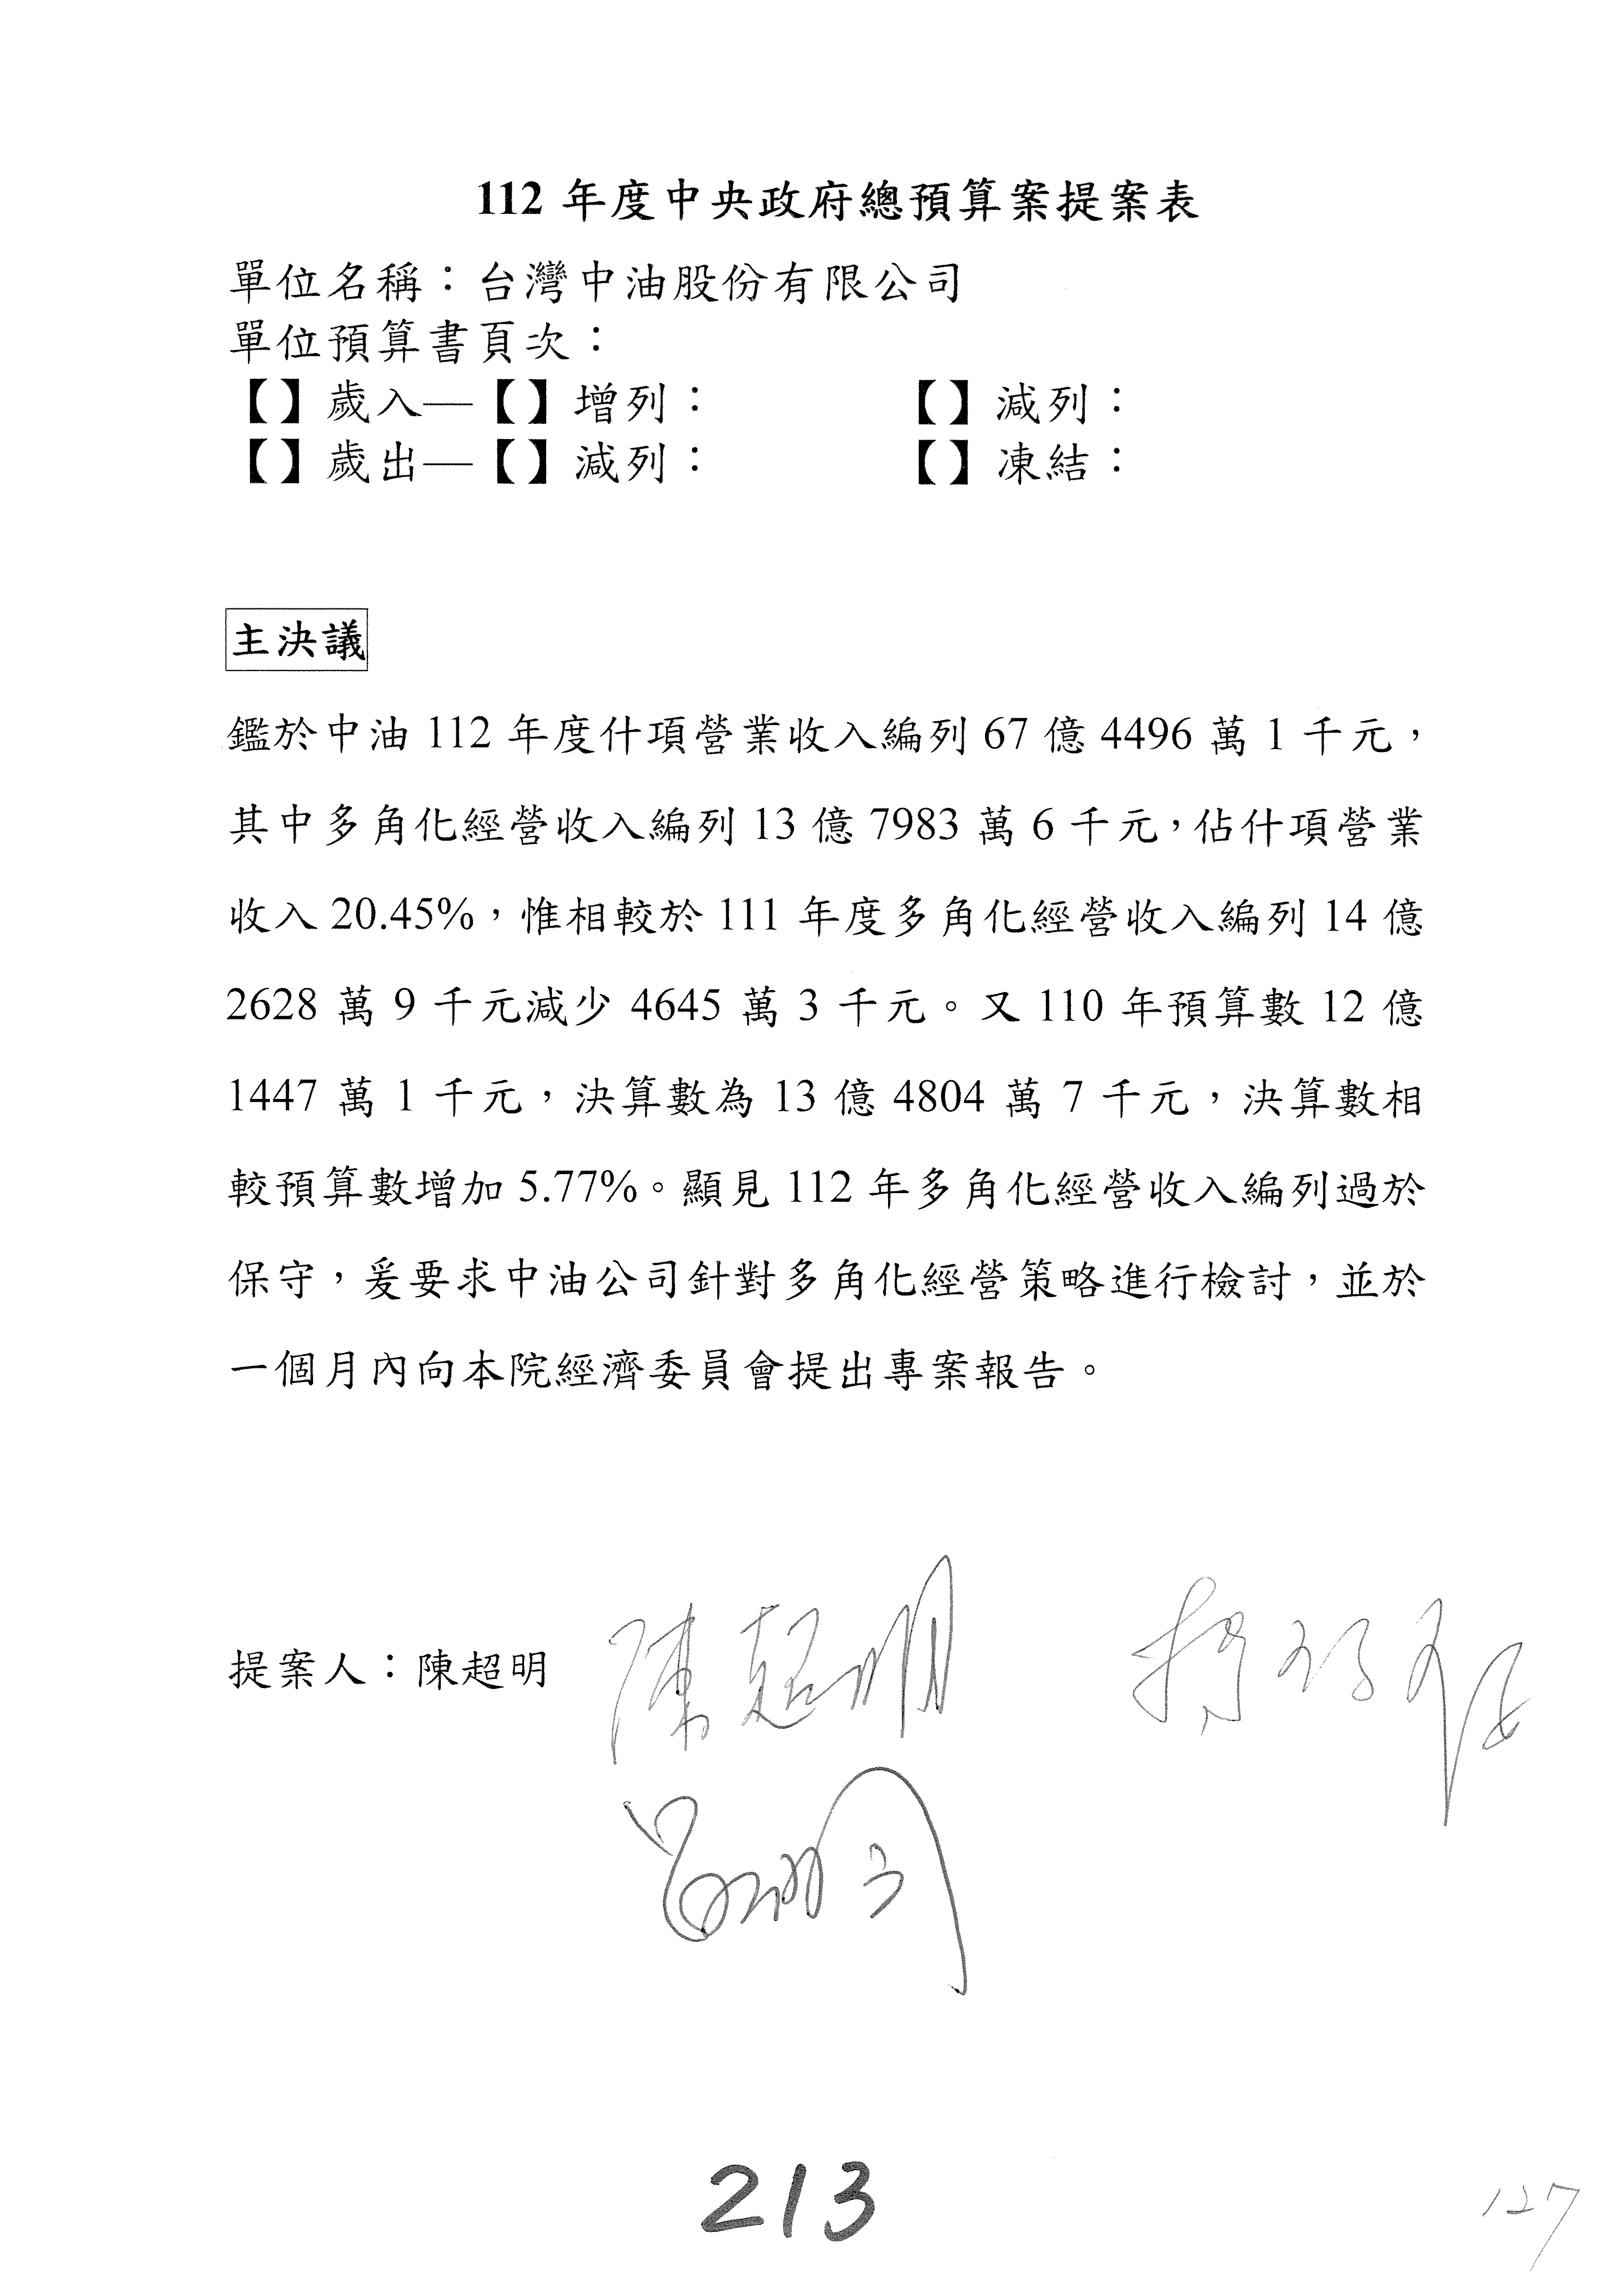 112 年度中央政府總預算案提案表
單位名稱：台灣中油股份有限公司
單位預算書頁次：
【】歲入—【】增列：　　【】減列：
【】歲出—【】減列：　　【】凍結：
主決議
鑑於中油 112 年度什項營業收入編列 67 億 4496 萬 1 千元，
其中多角化經營收入編列 13 億 7983 萬 6 千元，佔什項營業
收入 20.45%，惟相較於 111 年度多角化經營收入編列 14 億
2628 萬 9 千元減少 4645 萬 3 千元。又 110 年預算數 12 億
1447 萬 1 千元，決算數為 13 億 4804 萬 7 千元，決算數相
較預算數增加 5.77%。顯見 112 年多角化經營收入編列過於
保守，爰要求中油公司針對多角化經營策略進行檢討，並於
一個月內向本院經濟委員會提出專案報告。
提案人：陳超明 陳超明
213
127